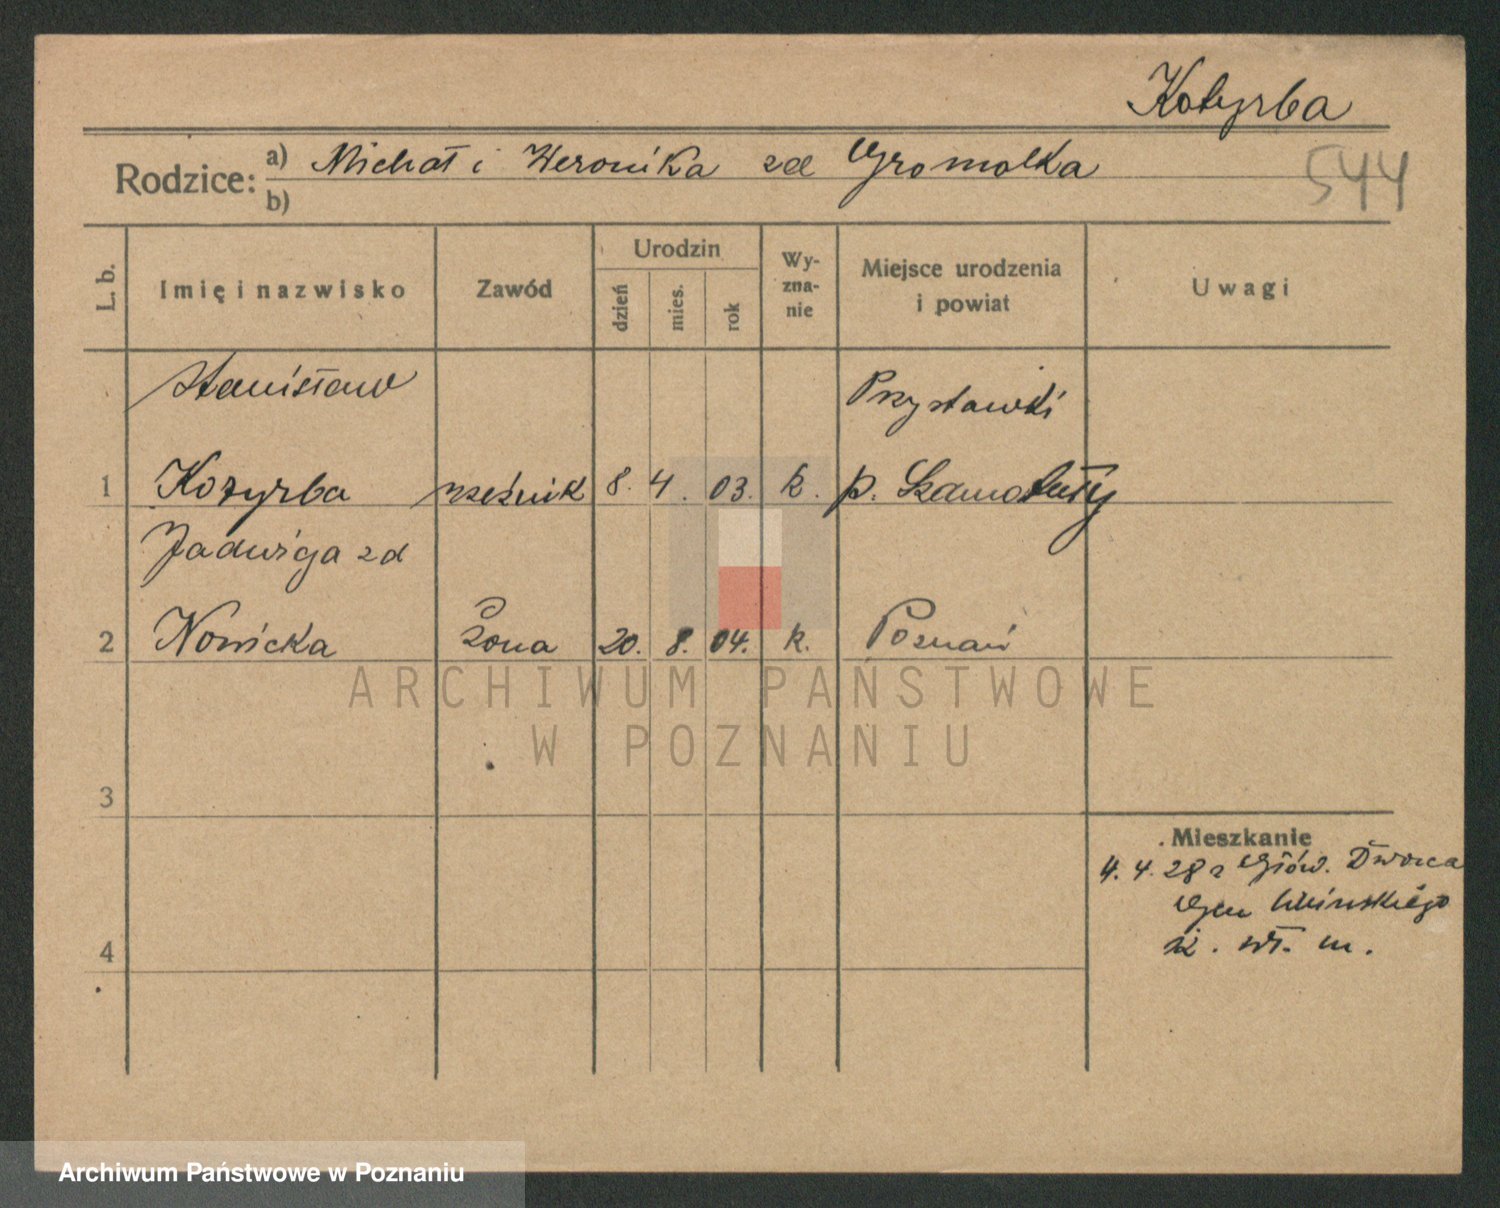 Kotyrba
Rodzice: a) Michał i Weronika zd Gromolka
b)
544
L. b.
Imię i nazwisko
Zawód
Urodzin
dzień
mies.
rok
Wy-
zna-
nie
Miejsce urodzenia
i powiat
Uwagi
Stanisław
Przystawki
1 Kotyrba rzeźnik 8. 4. 03. k. p. Szamotuły
Jadwiga zd
2 Nowicka żona 20. 8. 04. k. Poznań
ARCHIWUM PAŃSTWOWE
W POZNANIU
3
Mieszkanie
4. 4. 28 z Głów. Dworca
4
m.
Archiwum Państwowe w Poznaniu